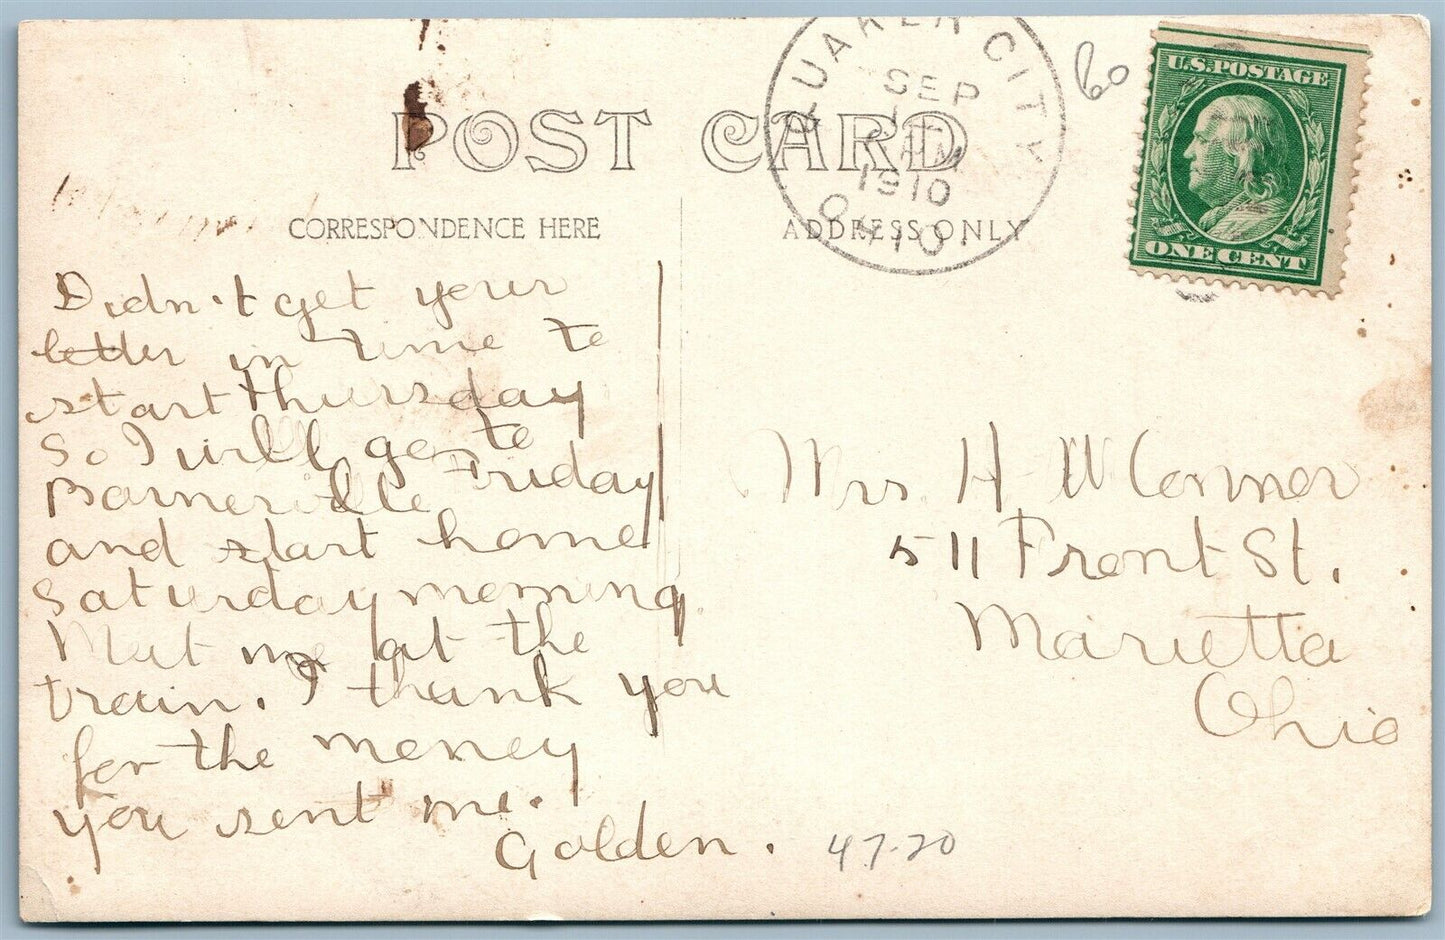 QUAKER CITY
SEP
1910
OHIO
60
U.S. POSTAGE
ONE CENT
POST CARD
CORRESPONDENCE HERE
ADDRESS ONLY
Didn't get your
letter in time to
start Thursday
So I will go to
Barnesville Friday
and start home
Saturday morning.
Meet me at the
train. I thank you
for the money
you sent me.
Golden.
Mrs. H W Connor
511 Front St.
Marietta
Ohio
47-20